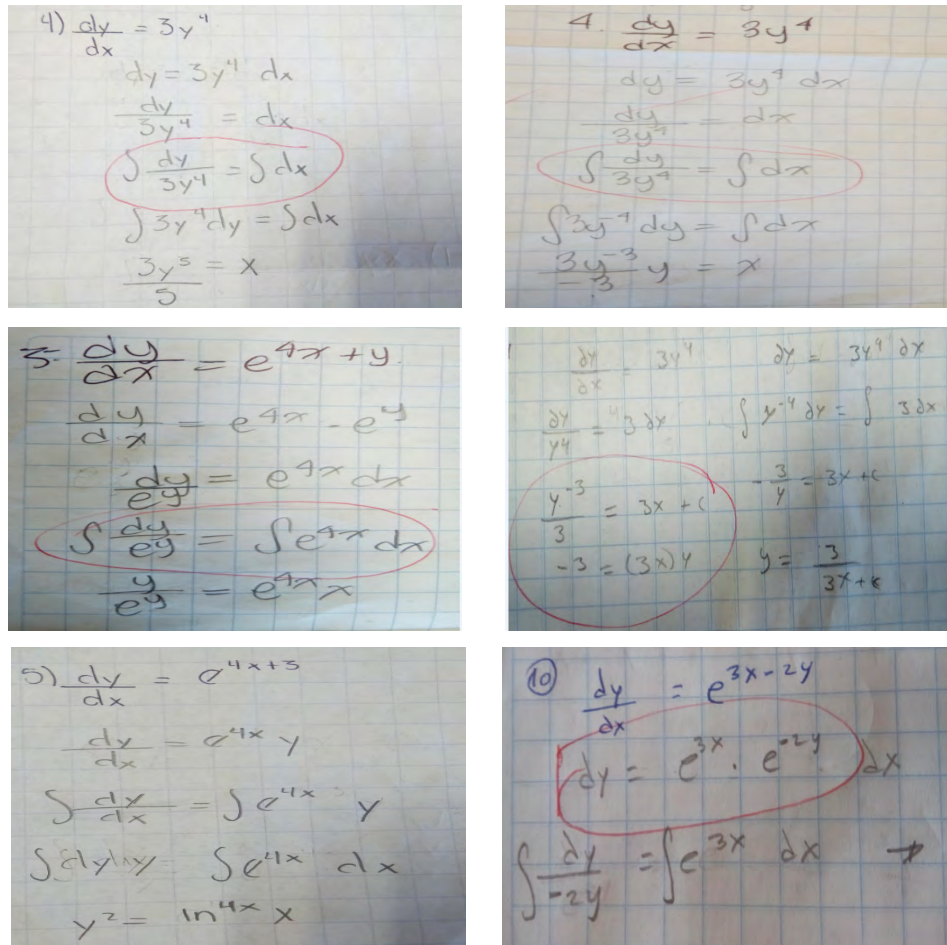 4) dy/dx = 3y⁴
dy = 3y⁴ dx
dy/3y⁴ = dx
∫ dy/3y⁴ = ∫ dx
∫ 3y⁴ dy = ∫ dx
3y⁵/5 = x
4. dy/dx = 3y⁴
dy = 3y⁴ dx
dy/3y⁴ = dx
∫ dy/3y⁴ = ∫ dx
∫ 3y⁻⁴ dy = ∫ dx
3y⁻³/-3 y = x
5. dy/dx = e^(4x + y)
dy/dx = e^(4x) - e^y
dy/e^y = e^(4x) dx
∫ dy/e^y = ∫ e^(4x) dx
y/e^y = e^(4x) x
dy/dx = 3y⁴ dy = 3y⁴ dx
dy/y4 = 3 dx ∫ y⁻⁴ dy = ∫ 3 dx
y⁻³/3 = 3x + c - 3/y = 3x + c
-3 = (3x) y y = 3/(3x + c)
5) dy/dx = e^(4x+3)
dy/dx = e^(4x) y
∫ dy/dx = ∫ e^(4x) y
∫ dy = ∫ e^(4x) dx
y² = ln^(4x) x
10 dy/dx = e^(3x - 2y)
dy = e^(3x) · e^(-2y) dx
∫ dy/-2y = ∫ e^(3x) dx →